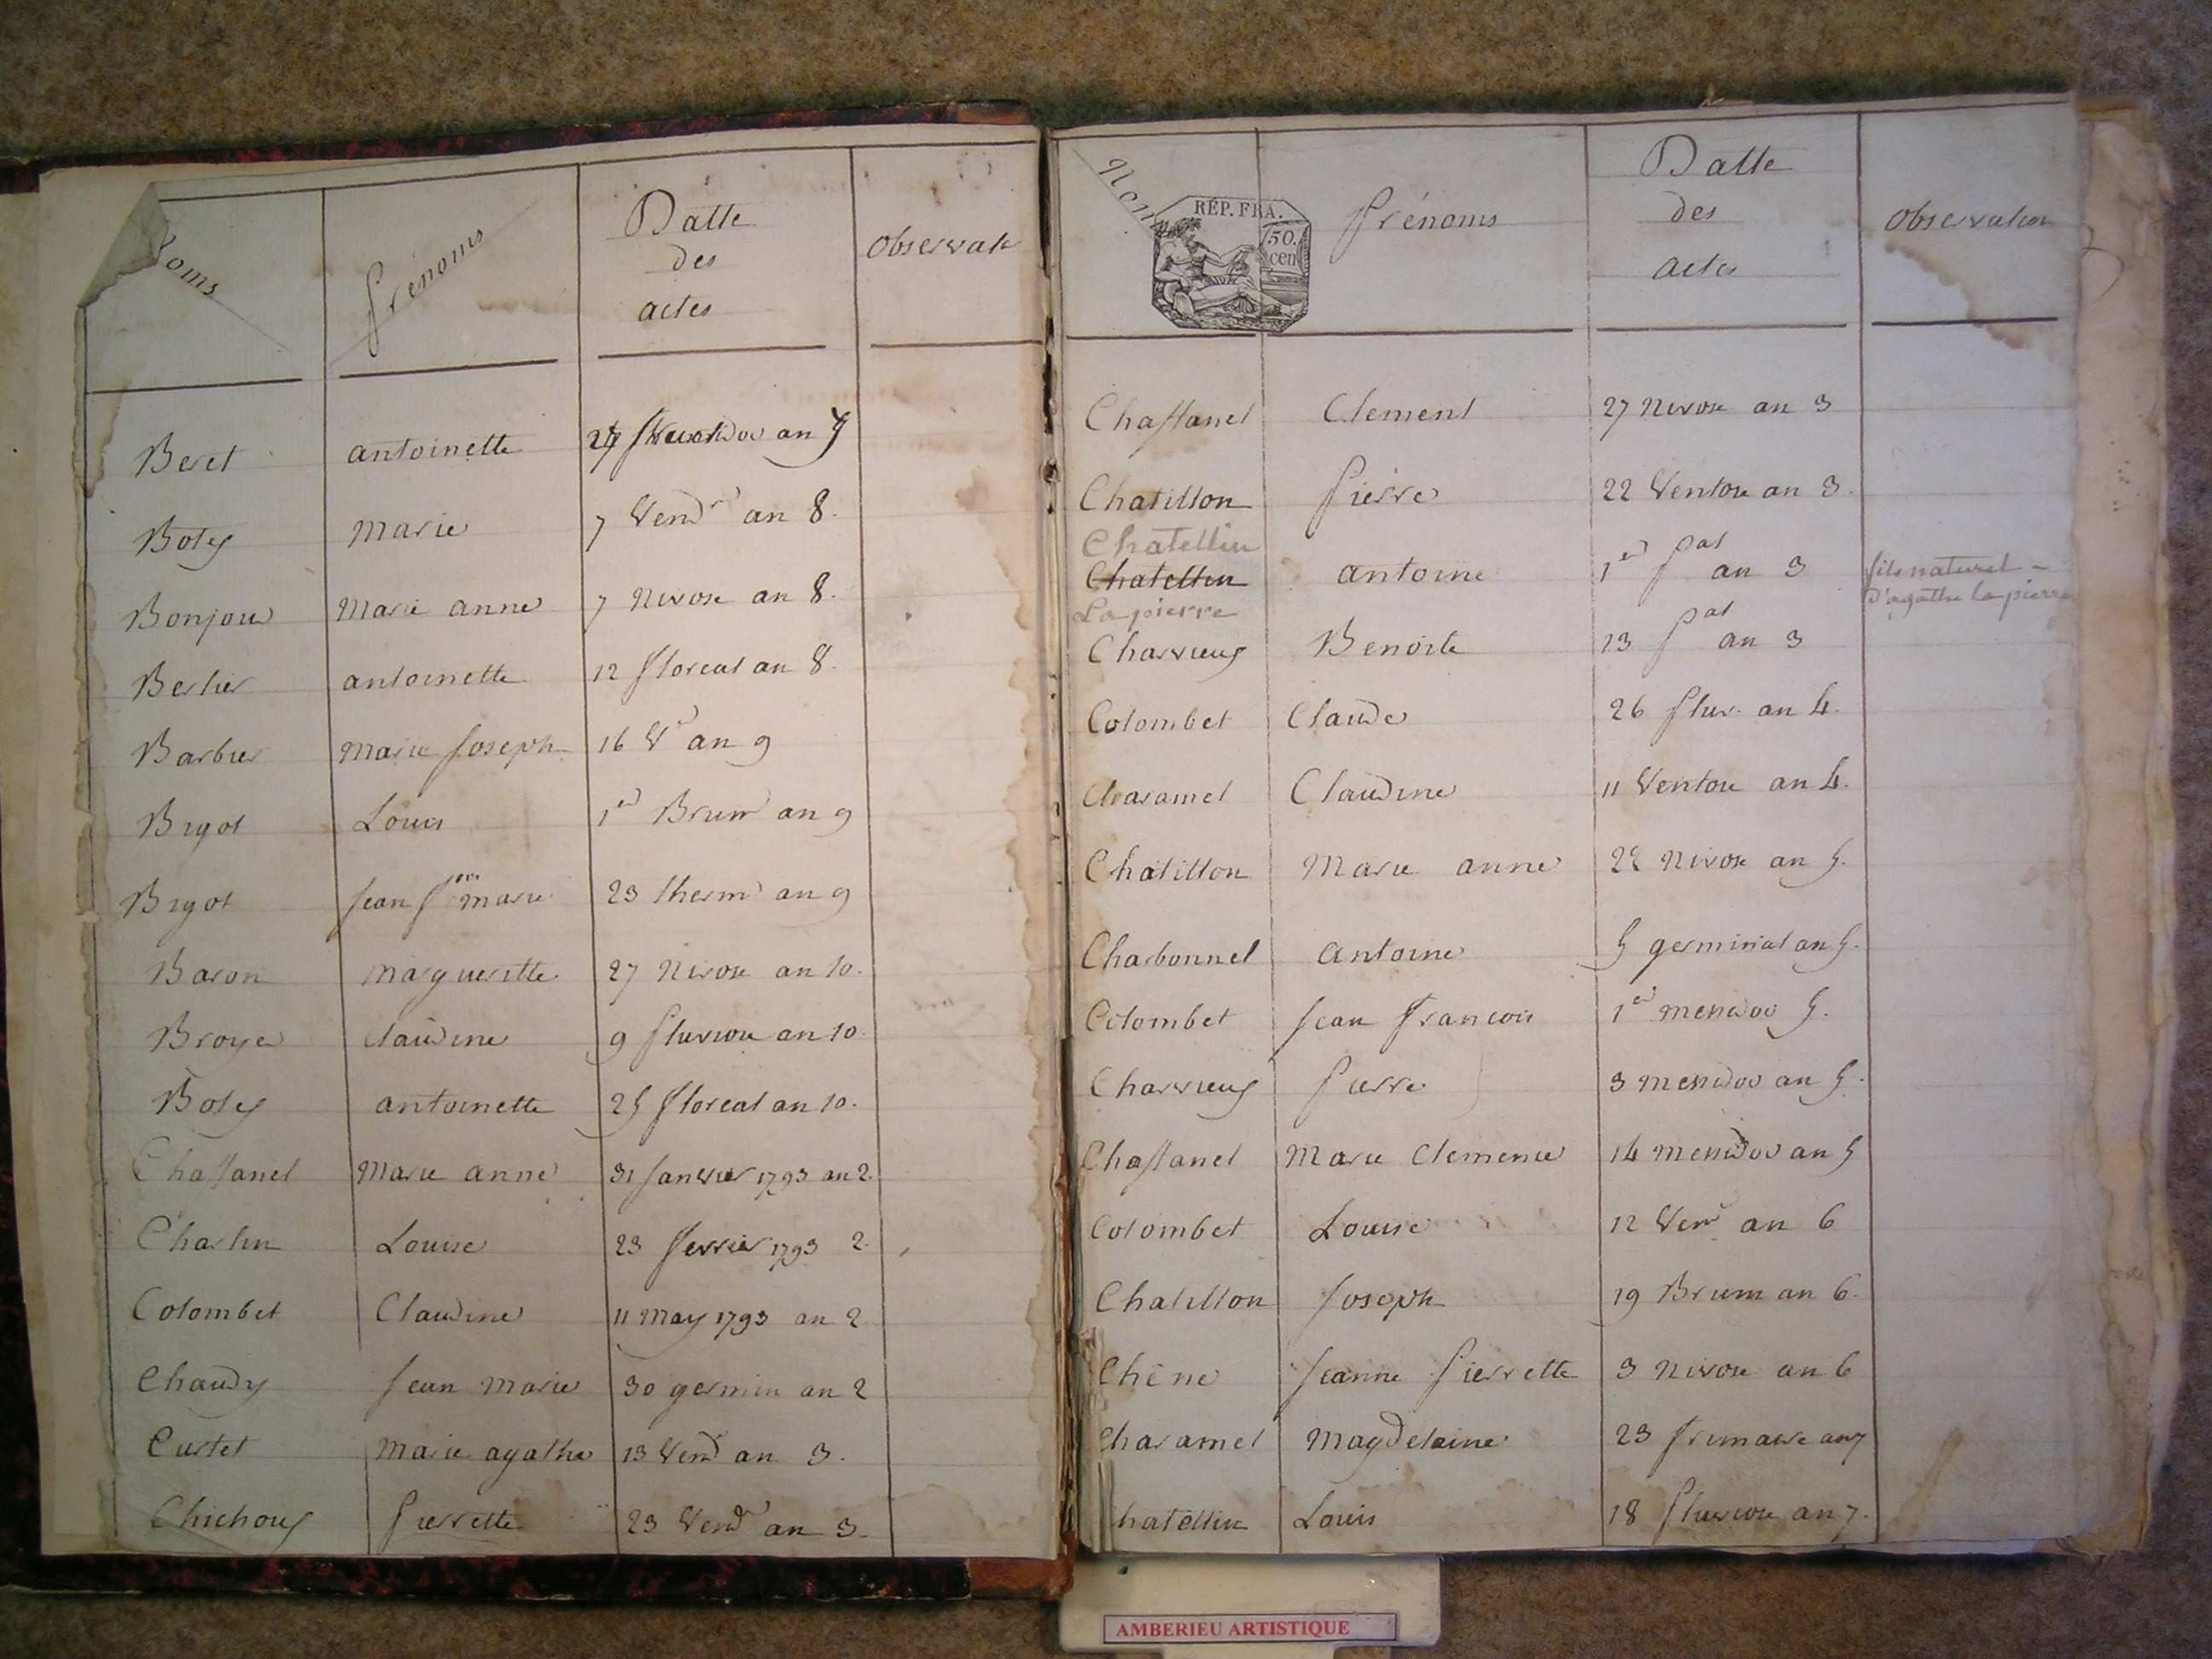 Noms Prénoms Datte des actes Observat
Beret antoinette an 7
Botex Marie 7 Vend.r an 8.
Bonjour Marie anne 7 Nivose an 8.
Berlier antoinette 12 floreal an 8.
Barbier Marie Joseph 16 V.r an 9
Bigot Louis 1er Brum an 9
Bigot Jean f.ois marie 23 therm an 9
Baron Margueritte 27 Nivose an 10.
Broyer Claudine 9 pluviose an 10.
Botex antoinette 25 floreal an 10.
Chassanel Marie anne 31 Janvier 1793 an 2.
Charlin Louise 23 fevrier 1793 2.
Colombet Claudine 11 May 1793 an 2
Chaudy Jean Marie 30 germin an 2
Curtet Marie agathe 13 Vend an 3.
Chichoux pierrette 23 Vend.r an 3.
Noms Prénoms Datte des actes Observation
RÉP. FRA.
50.
cen
Chassanel Clement 27 Nivose an 3
Chatillon Pierre 22 Ventose an 3.
Chatellin
Chatellin antoine 1er p.al an 3 fils naturel -
Lapierre d'agathe Lapierre
Charvieux Benoite 13 p.al an 3
Colombet Claude 26 pluv. an 4.
Charamel Claudine 11 Ventose an 4.
Chatillon Marie anne 22 Nivose an 5.
Charbonnel Antoine 5 germinal an 5.
Colombet Jean François 1er messidor 5.
Charvieux pierre 3 messidor an 5.
Chassanel Marie Clemence 14 messidor an 5
Colombet Louise 12 Vend an 6
Chatillon Joseph 19 Brum an 6.
Chêne Jeanne pierrette 3 Nivose an 6
Charamel Magdelaine 23 frimaire an 7
Chatellin Louis 18 pluviose an 7.
AMBERIEU ARTISTIQUE